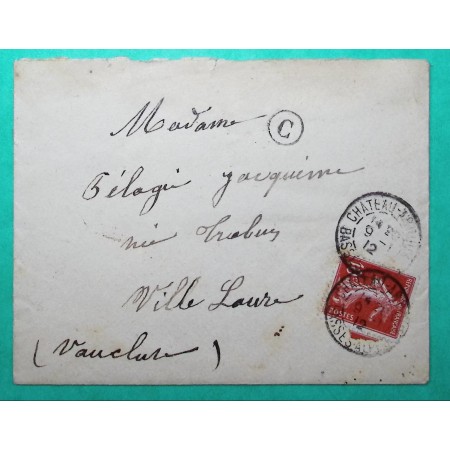 Madame
C
Pélagie Jacquème
née Trabuc
Ville Laure
(Vaucluse)
CHATEAU-
BAS
9
12
POSTES